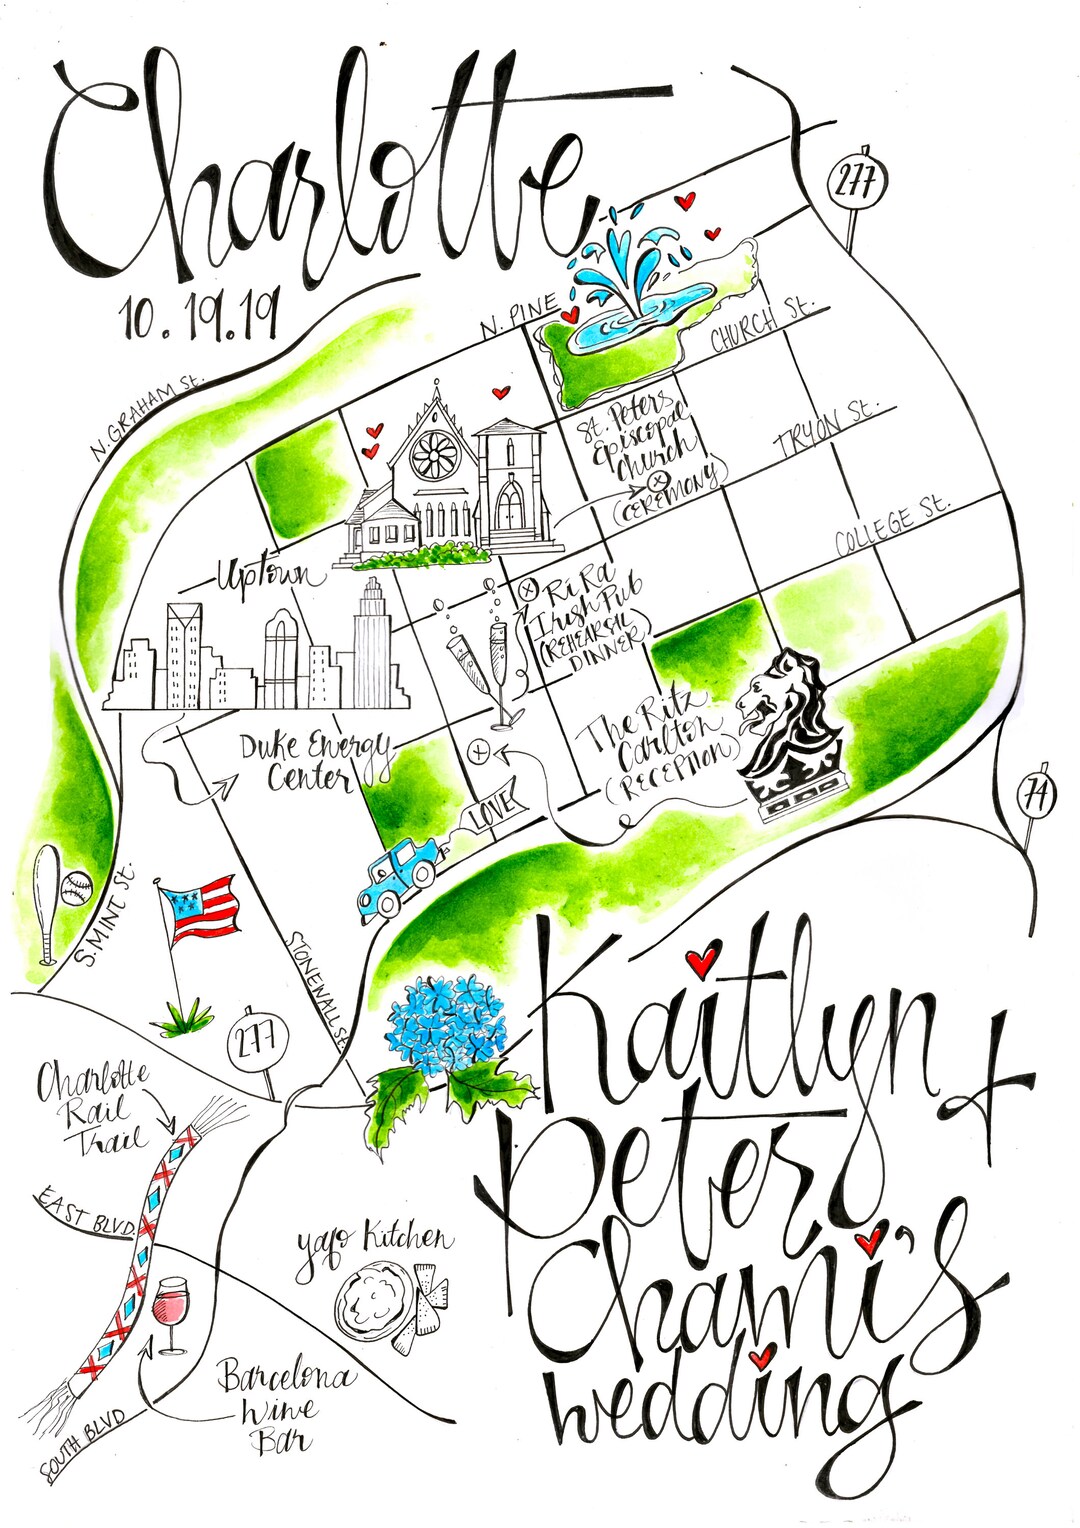 Charlotte
10.19.19
277
N. PINE
CHURCH St.
N. GRAHAM St.
St. Peters
Episcopal
Church
(CEREMONY)
TRYON St.
COLLEGE St.
Uptown
RiRa
Irish Pub
(REHEARSAL
DINNER)
The Ritz
Carlton
(RECEPTION)
Duke Energy
Center
LOVE
74
S. MINT St.
STONEWALL St.
277
Kaitlyn +
Peter
Chami's
wedding
Charlotte
Rail
Trail
EAST BLVD.
yafo Kitchen
Barcelona
Wine
Bar
SOUTH BLVD